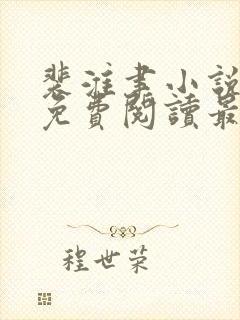 裴淮書小說
免費閱讀最
程世荣